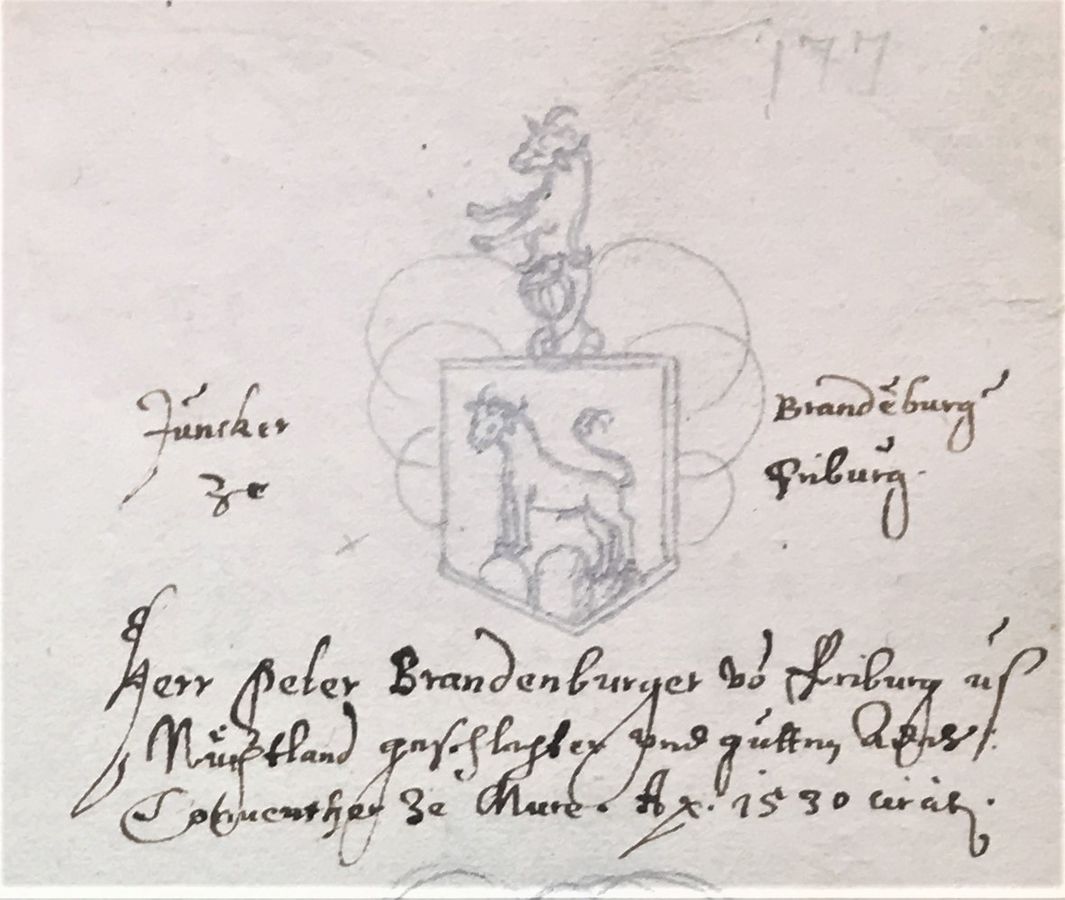 177
Juncker Brandēburg
ze Friburg.
Herr Peter Brandenburger vō Friburg us
Nüchtland geschlachter vnd gutten
Conuenther ze Mure. A x. 1530